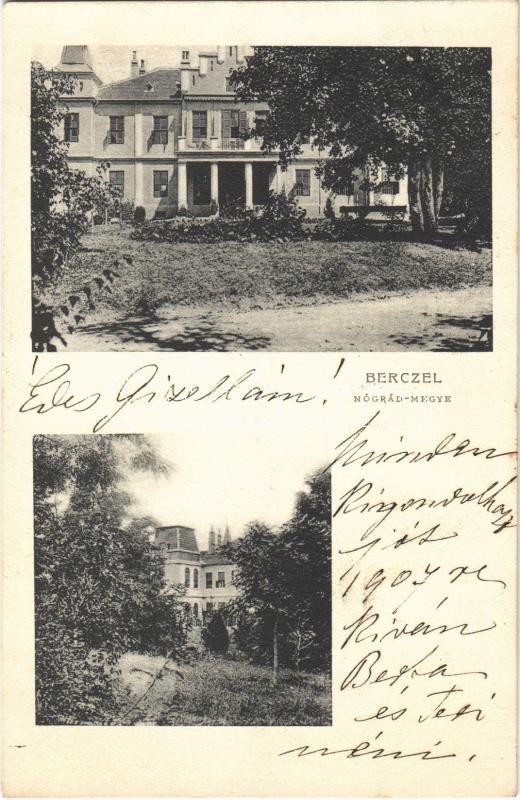 Édes Gizellám!
BERCZEL
NÓGRÁD-MEGYE
Minden
jót
1907 re
kiván
Berta
és Teri
néni.